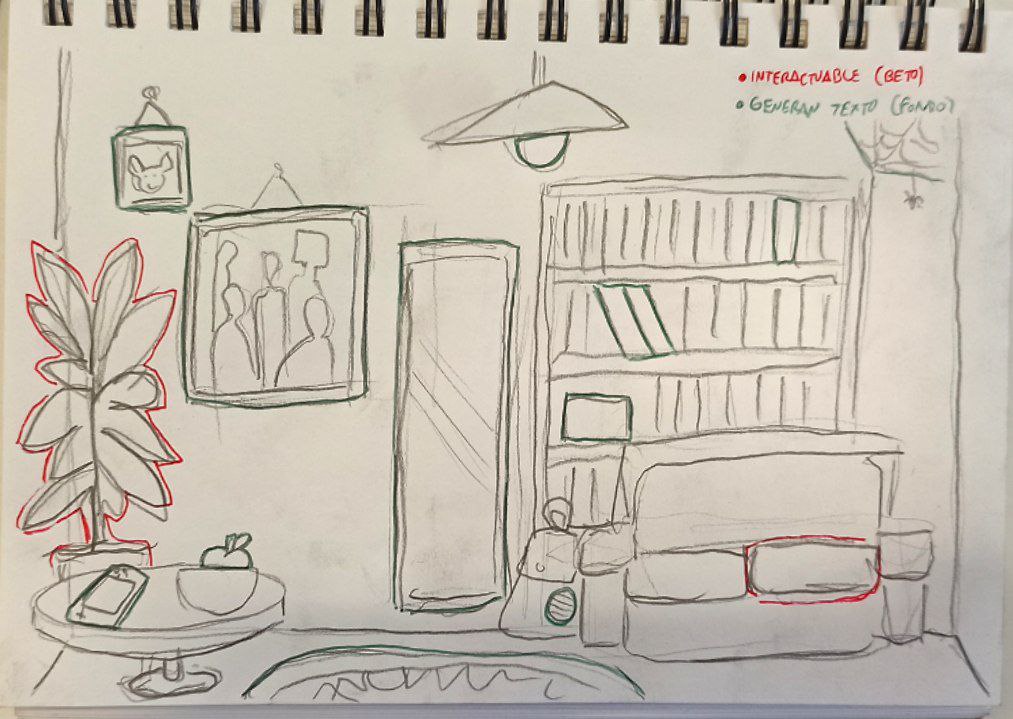 • INTERACTUABLE (BETO)
• GENERAN TEXTO (FONDO)